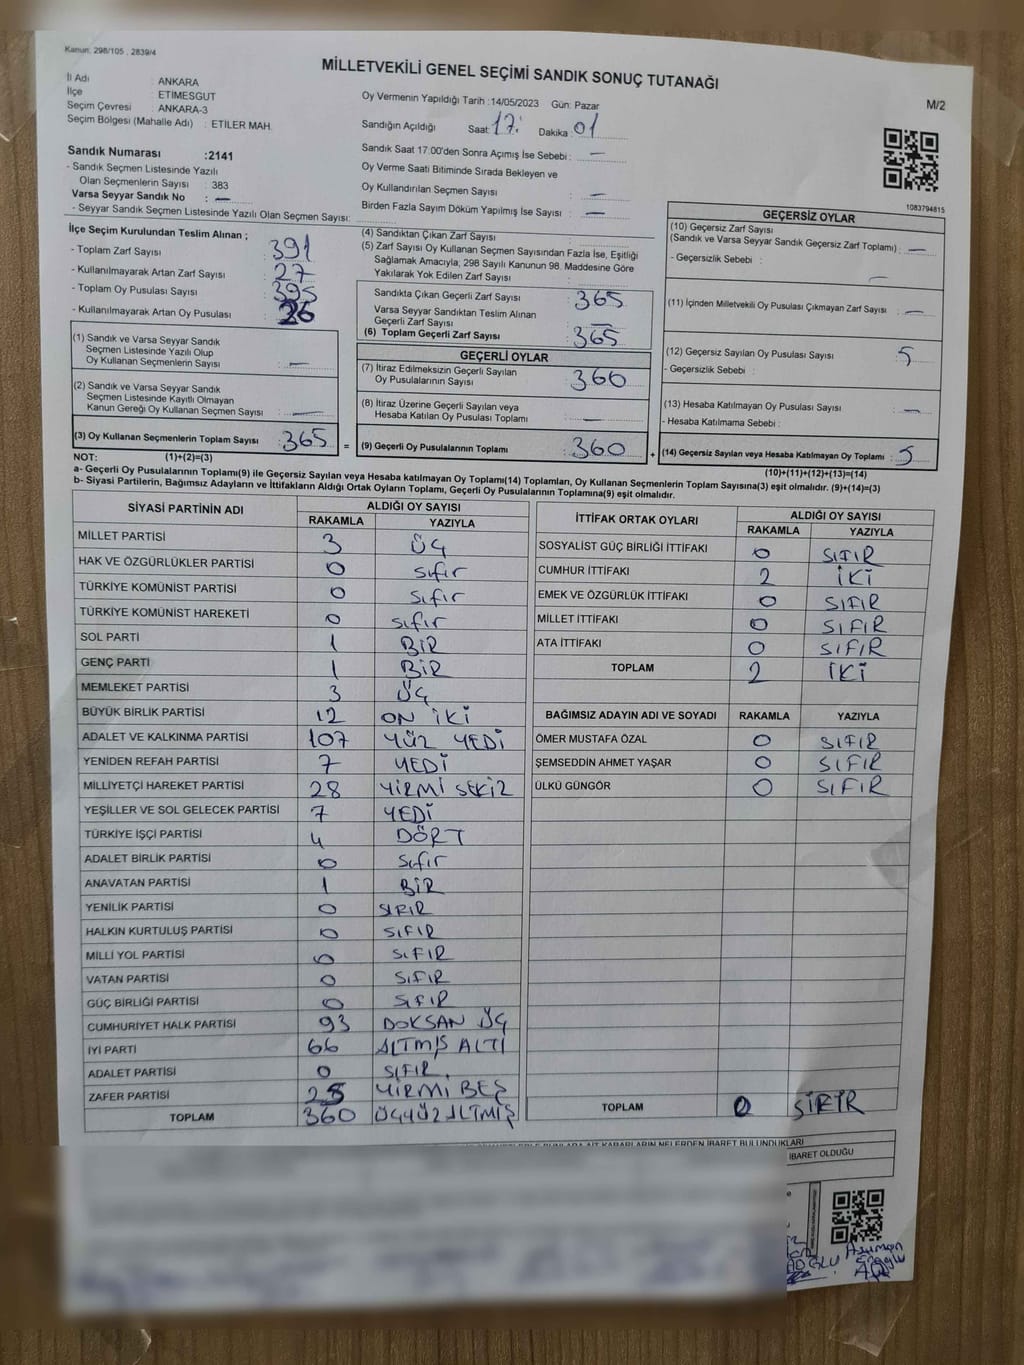 Kanun: 298/105 , 2839/4
MİLLETVEKİLİ GENEL SEÇİMİ SANDIK SONUÇ TUTANAĞI
M/2
İl Adı : ANKARA
İlçe : ETIMESGUT
Seçim Çevresi : ANKARA-3
Seçim Bölgesi (Mahalle Adı) : ETİLER MAH.
Sandık Numarası :2141
- Sandık Seçmen Listesinde Yazılı
Olan Seçmenlerin Sayısı : 383
Varsa Seyyar Sandık No : —
- Seyyar Sandık Seçmen Listesinde Yazılı Olan Seçmen Sayısı:
Oy Vermenin Yapıldığı Tarih :14/05/2023 Gün: Pazar
Sandığın Açıldığı Saat: 17: Dakika : 01
Sandık Saat 17:00'den Sonra Açımış İse Sebebi : —
Oy Verme Saati Bitiminde Sırada Bekleyen ve
Oy Kullandırılan Seçmen Sayısı : —
Birden Fazla Sayım Döküm Yapılmış İse Sayısı : —
1083794815
İlçe Seçim Kurulundan Teslim Alınan ;
- Toplam Zarf Sayısı : 391
- Kullanılmayarak Artan Zarf Sayısı : 27
- Toplam Oy Pusulası Sayısı : 395
- Kullanılmayarak Artan Oy Pusulası : 26
(1) Sandık ve Varsa Seyyar Sandık
Seçmen Listesinde Yazılı Olup
Oy Kullanan Seçmenlerin Sayısı : —
(2) Sandık ve Varsa Seyyar Sandık
Seçmen Listesinde Kayıtlı Olmayan
Kanun Gereği Oy Kullanan Seçmen Sayısı : —
(3) Oy Kullanan Seçmenlerin Toplam Sayısı : 365 =
(4) Sandıktan Çıkan Zarf Sayısı :
(5) Zarf Sayısı Oy Kullanan Seçmen Sayısından Fazla İse, Eşitliği
Sağlamak Amacıyla, 298 Sayılı Kanunun 98. Maddesine Göre
Yakılarak Yok Edilen Zarf Sayısı :
Sandıkta Çıkan Geçerli Zarf Sayısı : 365
Varsa Seyyar Sandıktan Teslim Alınan
Geçerli Zarf Sayısı : —
(6) Toplam Geçerli Zarf Sayısı : 365
GEÇERLİ OYLAR
(7) İtiraz Edilmeksizin Geçerli Sayılan
Oy Pusulalarının Sayısı : 360
(8) İtiraz Üzerine Geçerli Sayılan veya
Hesaba Katılan Oy Pusulası Toplamı : —
(9) Geçerli Oy Pusulalarının Toplamı : 360 +
GEÇERSİZ OYLAR
(10) Geçersiz Zarf Sayısı
(Sandık ve Varsa Seyyar Sandık Geçersiz Zarf Toplamı) : —
- Geçersizlik Sebebi :
—
(11) İçinden Milletvekili Oy Pusulası Çıkmayan Zarf Sayısı : —
(12) Geçersiz Sayılan Oy Pusulası Sayısı : 5
- Geçersizlik Sebebi :
(13) Hesaba Katılmayan Oy Pusulası Sayısı : —
- Hesaba Katılmama Sebebi :
(14) Geçersiz Sayılan veya Hesaba Katılmayan Oy Toplamı : 5
NOT: (1)+(2)=(3)
(10)+(11)+(12)+(13)=(14)
a- Geçerli Oy Pusulalarının Toplamı(9) ile Geçersiz Sayılan veya Hesaba katılmayan Oy Toplamı(14) Toplamları, Oy Kullanan Seçmenlerin Toplam Sayısına(3) eşit olmalıdır. (9)+(14)=(3)
b- Siyasi Partilerin, Bağımsız Adayların ve İttifakların Aldığı Ortak Oyların Toplamı, Geçerli Oy Pusulalarının Toplamına(9) eşit olmalıdır.
SİYASİ PARTİNİN ADI ALDIĞI OY SAYISI
RAKAMLA YAZIYLA
MİLLET PARTİSİ 3 ÜÇ
HAK VE ÖZGÜRLÜKLER PARTİSİ 0 Sıfır
TÜRKİYE KOMÜNİST PARTİSİ 0 Sıfır
TÜRKİYE KOMÜNİST HAREKETİ 0 Sıfır
SOL PARTİ 1 BİR
GENÇ PARTİ 1 BİR
MEMLEKET PARTİSİ 3 ÜÇ
BÜYÜK BİRLİK PARTİSİ 12 ON İKİ
ADALET VE KALKINMA PARTİSİ 107 YÜZ YEDİ
YENİDEN REFAH PARTİSİ 7 YEDİ
MİLLİYETÇİ HAREKET PARTİSİ 28 YİRMİ SEKİZ
YEŞİLLER VE SOL GELECEK PARTİSİ 7 YEDİ
TÜRKİYE İŞÇİ PARTİSİ 4 DÖRT
ADALET BİRLİK PARTİSİ 0 Sıfır
ANAVATAN PARTİSİ 1 BİR
YENİLİK PARTİSİ 0 SIFIR
HALKIN KURTULUŞ PARTİSİ 0 SIFIR
MİLLİ YOL PARTİSİ 0 SIFIR
VATAN PARTİSİ 0 SIFIR
GÜÇ BİRLİĞİ PARTİSİ 0 SIFIR
CUMHURİYET HALK PARTİSİ 93 DOKSAN ÜÇ
İYİ PARTİ 66 ALTMIŞ ALTI
ADALET PARTİSİ 0 SIFIR.
ZAFER PARTİSİ 25 YİRMİ BEŞ
TOPLAM 360 ÜÇYÜZALTMIŞ
İTTİFAK ORTAK OYLARI ALDIĞI OY SAYISI
RAKAMLA YAZIYLA
SOSYALİST GÜÇ BİRLİĞİ İTTİFAKI 0 SIFIR
CUMHUR İTTİFAKI 2 İKİ
EMEK VE ÖZGÜRLÜK İTTİFAKI 0 SIFIR
MİLLET İTTİFAKI 0 SIFIR
ATA İTTİFAKI 0 SIFIR
TOPLAM 2 İKİ
BAĞIMSIZ ADAYIN ADI VE SOYADI RAKAMLA YAZIYLA
ÖMER MUSTAFA ÖZAL 0 SIFIR
ŞEMSEDDİN AHMET YAŞAR 0 SIFIR
ÜLKÜ GÜNGÖR 0 SIFIR
TOPLAM 0 SIFIR
KARARLARIN NELERDEN İBARET BULUNDUKLARI
İBARET OLDUĞU